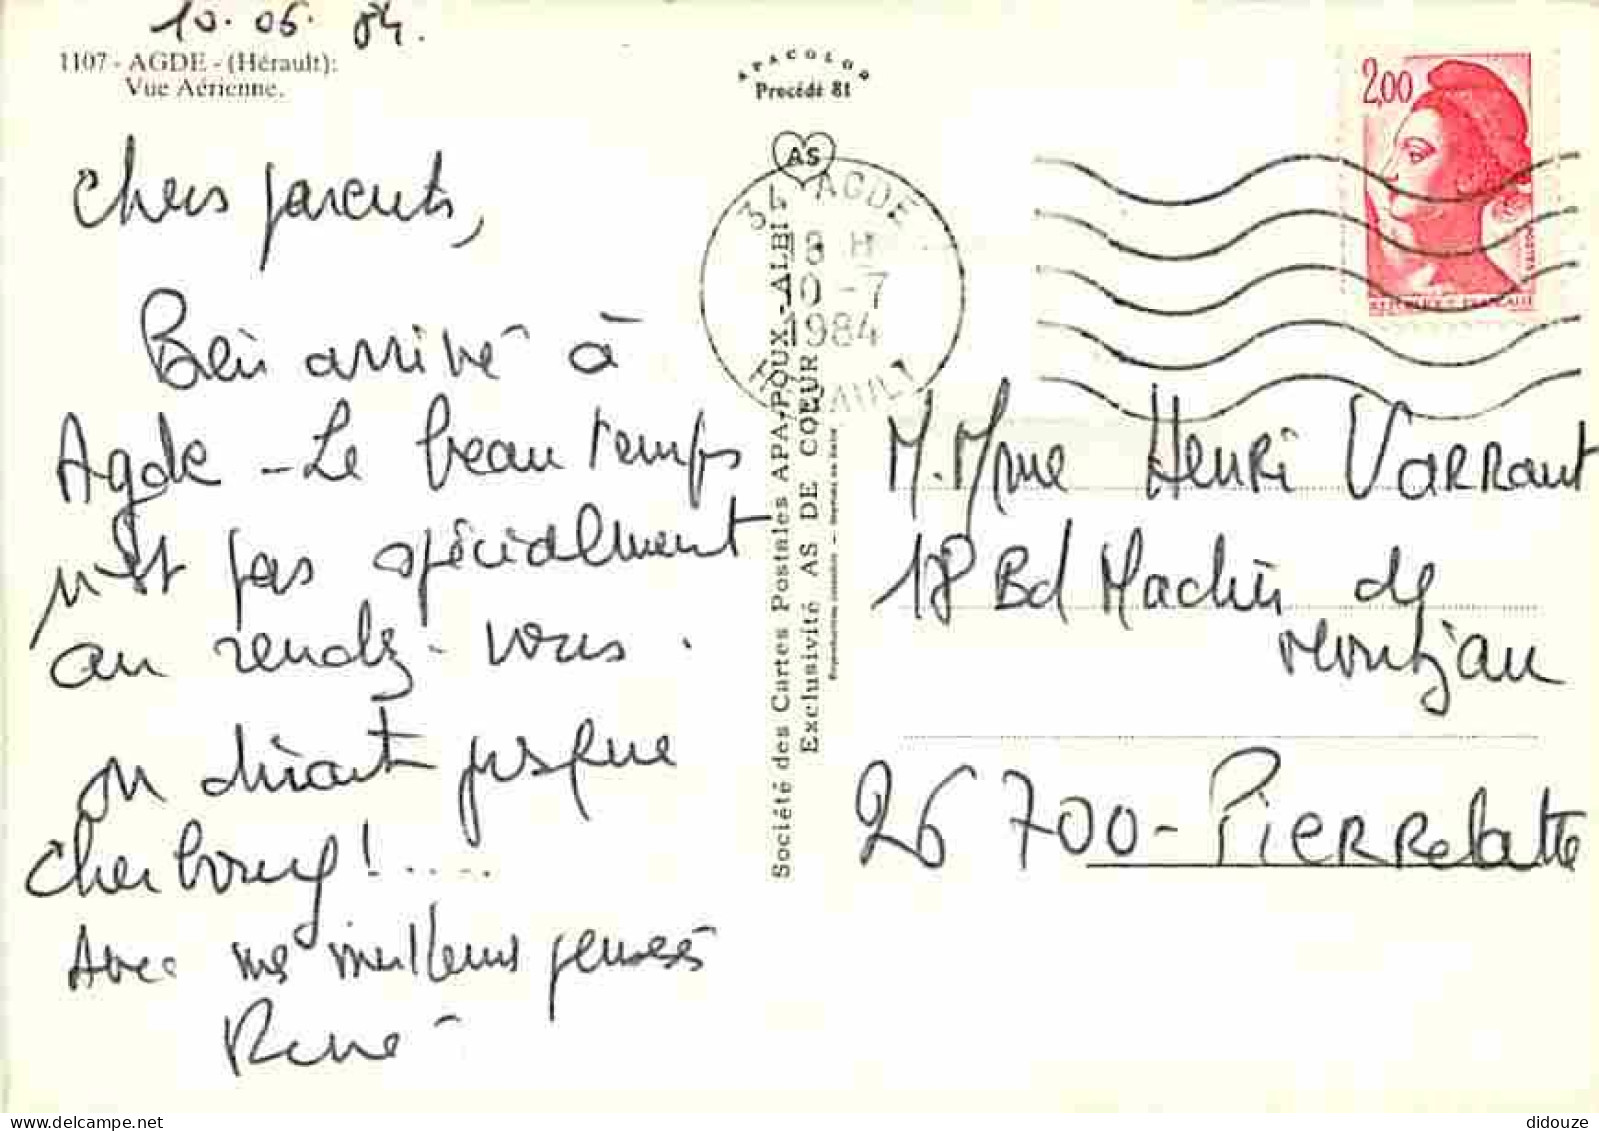 10.06.84.
1107 - AGDE - (Hérault):
Vue Aérienne.
APACOLOR
Procédé 81
AS
2,00
REPUBLIQUE FRANCAISE
34 AGDE
18 H
10-7
1984
HERAULT
Chers parents,
Bien arrivé à
Agde - Le beau temps
n'est pas spécialement
au rendez-vous.
on dirait jusque
Cherbourg!....
Avec mes meilleures pensées
René
Société des Cartes Postales APA-POUX - ALBI
Exclusivité AS DE COEUR
M. Mme Henri Varraut
18 Bd Machin de
Montjau
26700 - Pierrelatte
didouze